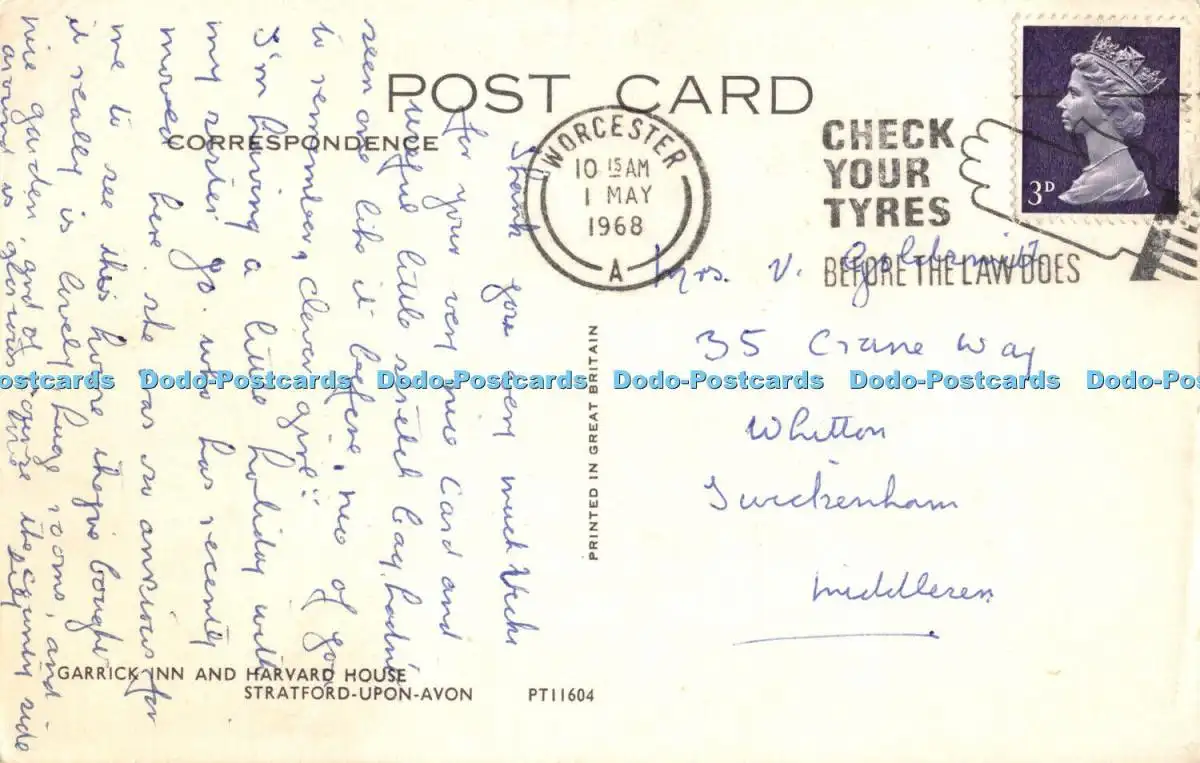 POST CARD
CORRESPONDENCE
WORCESTER
10 15 AM
1 MAY
1968
A
CHECK
YOUR
TYRES
BEFORE THE LAW DOES
3D
Mrs. V. Goldsmith
35 Crane Way
Whitton
Twickenham
Middlesex
Thank you very much
for your very nice card and
useful little bag, hadn't
seen one like it before, nice of you
to remember, clever girl!!
I'm having a little holiday with
my sister Jo. who has recently
moved here. she was so anxious for
me to see this house they've bought
it really is lovely huge rooms, and
nice garden, and of course the scenery
around is glorious
PRINTED IN GREAT BRITAIN
Dodo-Postcards Dodo-Postcards Dodo-Postcards Dodo-Postcards
GARRICK INN AND HARVARD HOUSE
STRATFORD-UPON-AVON PT11604